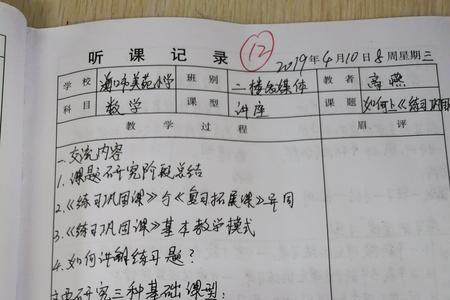 听课记录 12
2019年4月10日8周星期三
学校 海口市美苑小学 班别 二楼多媒体 教者 高燃
科目 数学 课型 讲座 课题 如何上《练习巩固
教学过程 眉评
一、交流内容
1. 课题研究阶段总结
2.《练习巩固课》与《复习拓展课》异同
3.《练习巩固课》基本教学模式
4. 如何讲解练习题?
研究三种基础课型: